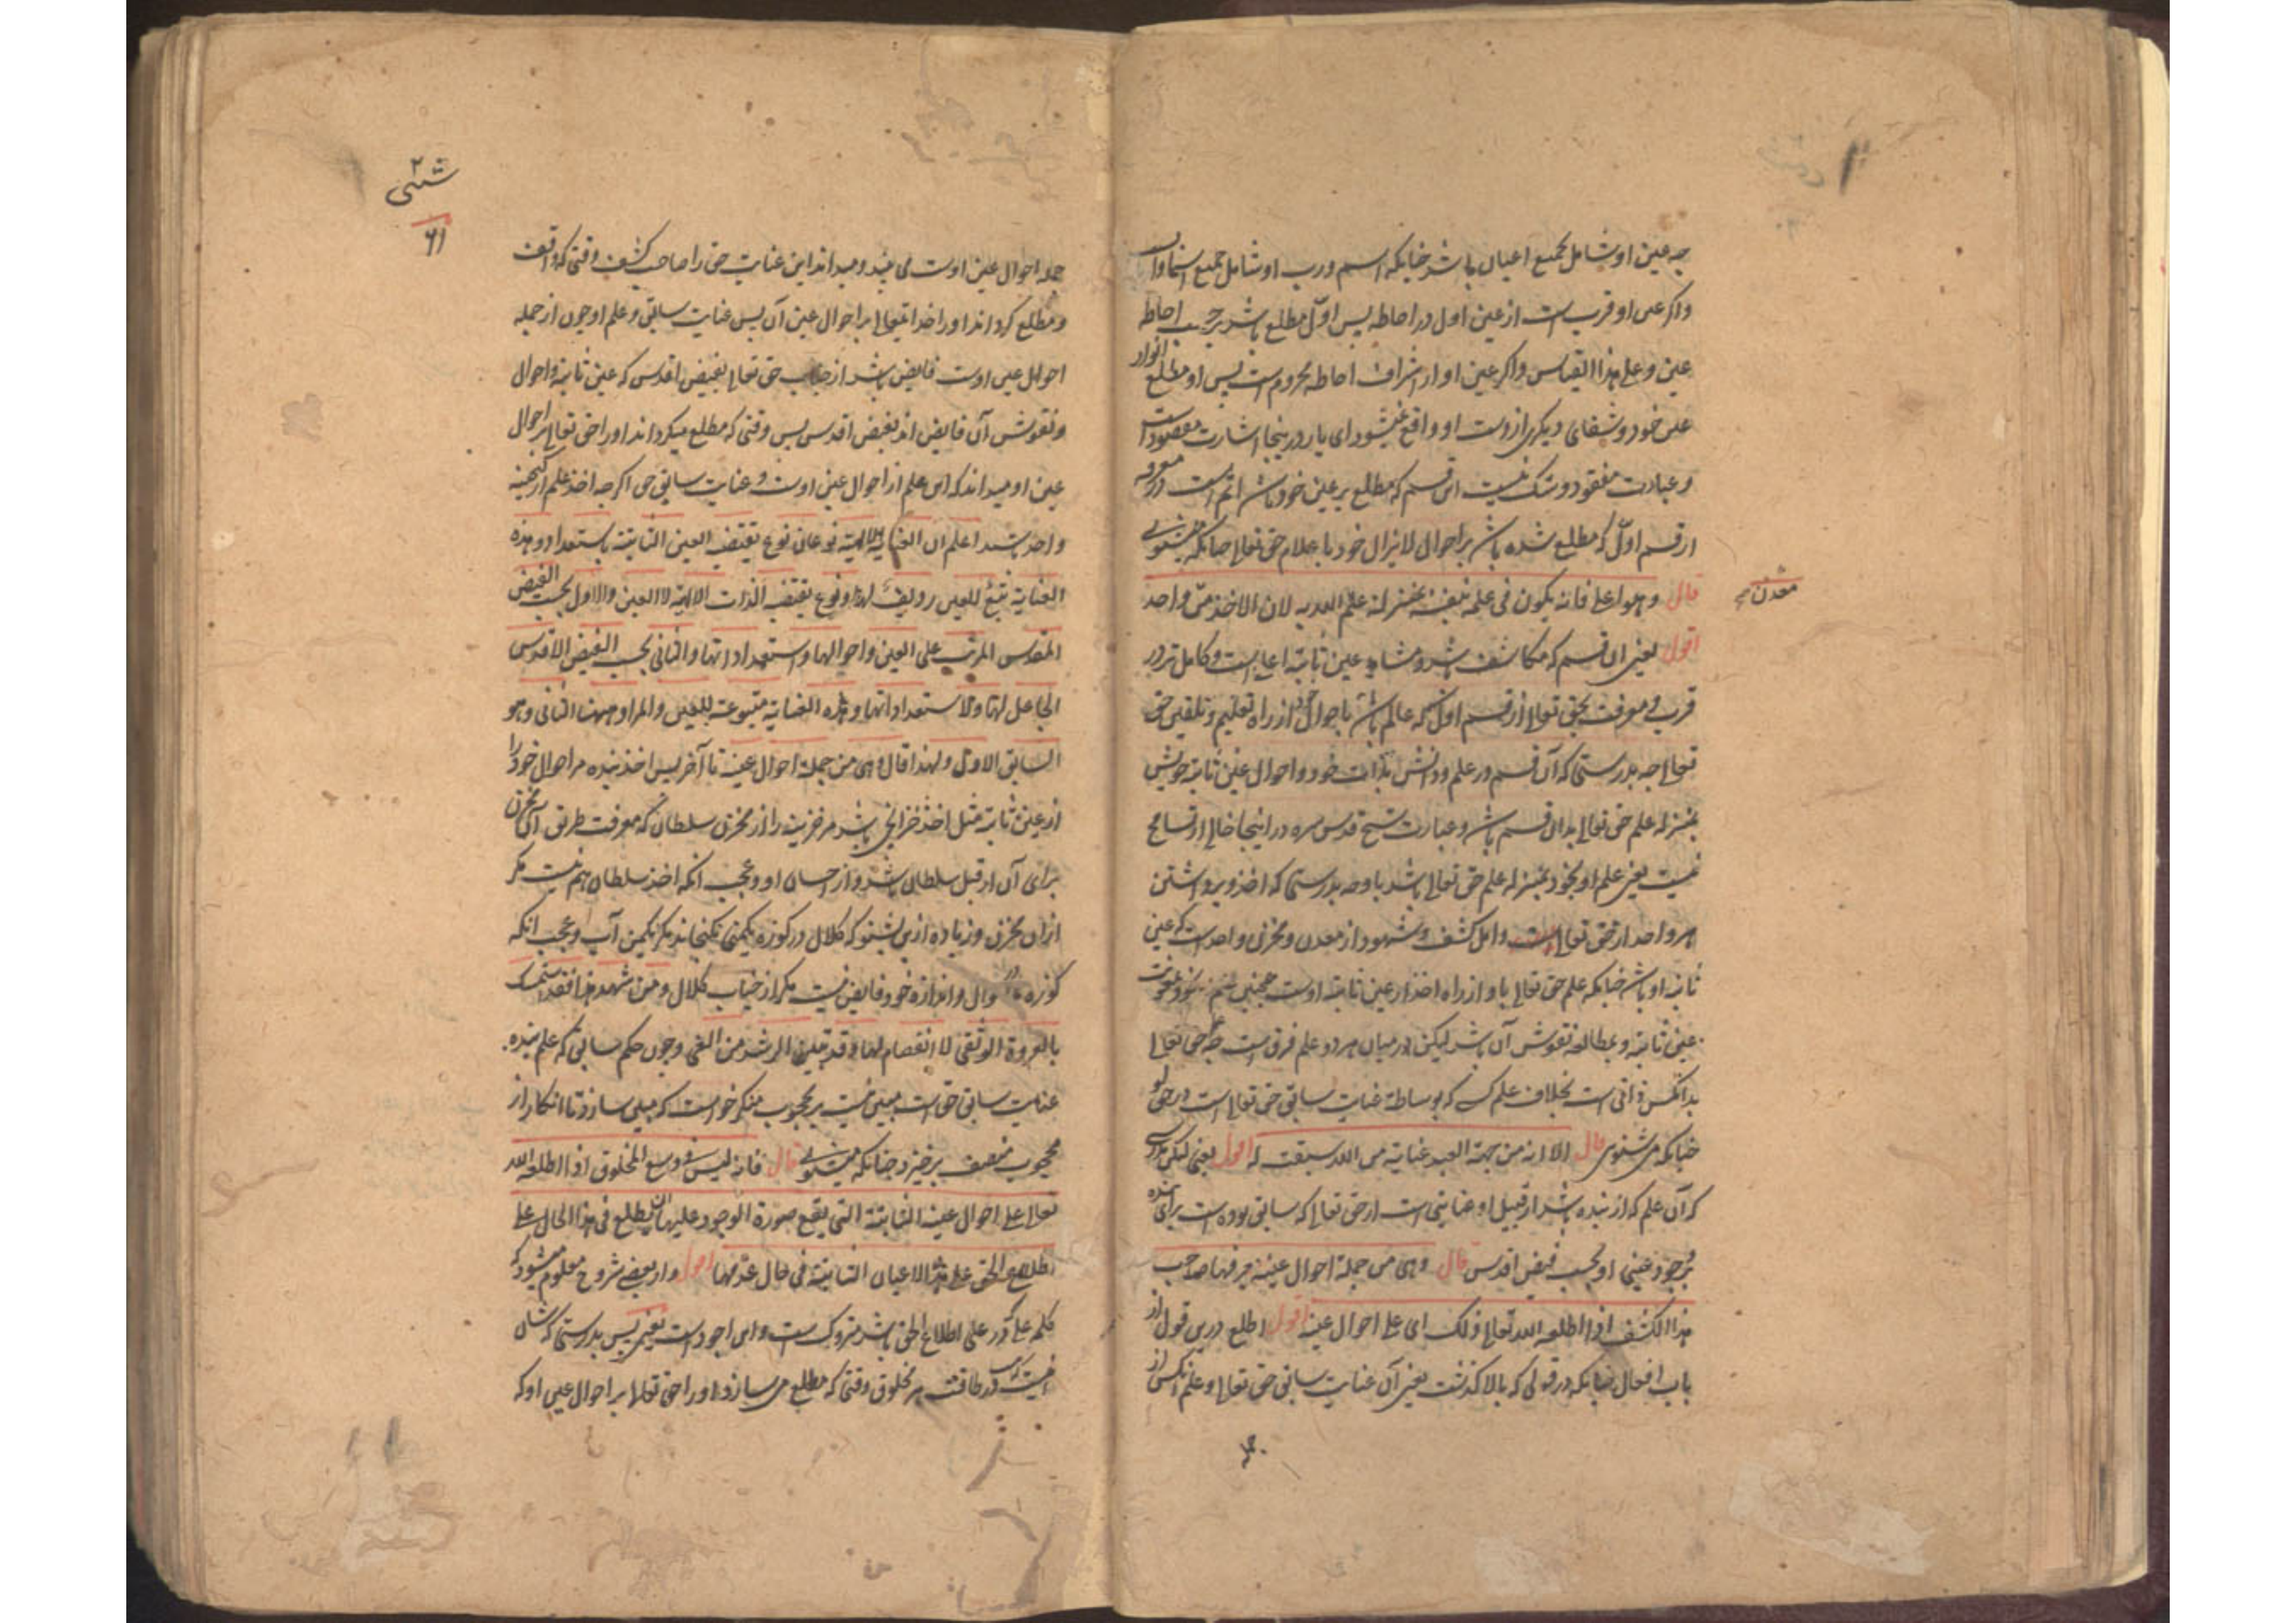 چه عین او شامل جمیع اعیان باشد چنانکه اسم و رب او شامل جمیع اسما و ارباب
واکر عین او قریب است از عین اول در احاطه پس اول مطلع باشد بر حسب احاطه
عین و علی هذا القیاس واکر عین او از اشراف احاطه محروم است پس او مطلع انوار
عین خود و شقای دیکری از وست او واقع نمیشود ای یار درینجا اشارت مقصود است
وعبارت مفقود و شک نیست این قسم که مطلع بر عین خود باشد اتم است در معرفه
از قسم اول که مطلع شده باشد بر احوال لایزال خود باعلام حق تعالی چنانکه میشنوی
قال وهو اعلی فانه یکون فی علمه بنفسه بمنزلة علم الله به لان الاخذ من واحد
معدن صح
اقول یعنی این قسم که مکاشف باشد و مشاهد عین ثابته اعلی است و کامل تر در
قرب و معرفت بحق تعالی از قسم اول که عالم باشد باحوال خود از راه تعلیم و تلقین حق
تعالی چه بدرستی که آن قسم در علم و دانش بذات خود و احوال عین ثابته خویش
بمنزله علم حق تعالی بدان قسم باشد و عبارت شیخ قدس سره در اینجا خالی از تسامح
نیست یعنی علم او بخود بمنزله علم حق تعالی باشد باو چه بدرستی که اخذ و برداشتن
هر واحد از حق تعالی و اهل کشف و شهود از معدن و مخزن واحد است که عین
ثابته او باشد چنانکه علم حق تعالی باو از راه اخذ از عین ثابته اوست همچنین
عین ثابته و بمطالعه نقوش آن باشد لیکن در میان هر دو علم فرق است چه علم حق تعالی
بدانکس ذاتی است بخلاف علم کسی که بوساطة عنایت سابق حق تعالی است در حق او
چنانکه می شنوی قال الا انه من جهة العبد عنایة من الله سبقت له اقول یعنی لیکن بدرستی
که آن علم که از بنده باشد از قبیل او عنایتی است از حق تعالی که سابق بوده است برای بنده
بوجود عینی او بحسب فیض اقدس قال وهی من جملة احوال عینه یعرفها صاحب
هذا الکشف اذا اطلعه الله تعالی ذلک ای علی احوال عینه اقول اطلع درین قول از
باب افعال چنانکه در قولی که بالا گذشت یعنی آن عنایت سابق حق تعالی و علم آنکس از
جمله احوال عین اوست می بیند و میداند این عنایت حق را صاحب کشف وقتی که واقف
ومطلع کرداند او را خدا تعالی بر احوال عین آن پس عنایت سابق و علم او چون از جمله
احوال عین اوست فایض باشد از جناب حق تعالی بفیض اقدس که عین ثابته و احوال
ونقوش آن فایض اند بفیض اقدس پس وقتی که مطلع میکرداند او را حق تعالی بر احوال
عین او میداند که این علم از احوال عین اوست و عنایت سابق حق اکرچه اخذ علم از کنجینه
واحد شد اعلم ان العنایة الالهیة نوعان نوع تقتضیه العین الثابتة باستعداد وهذه
العنایة تتبع للعین ردیف لها ونوع تقتضیه الذات الالهیة لا العین والاول بحسب الفیض
المقدس المرتب علی العین واحوالها واستعداداتها والثانی بحسب الفیض الاقدس
الجاعل لها ولاستعداداتها وهذه العنایة متبوعة للعین والمراد ههنا الثانی وهو
السابق الاول ولهذا قال وهی من جملة احوال عینه تا آخر پس اخذ بنده مر احوال خود را
از عین ثابته مثل اخذ خزانچی باشد مر خزینه را از مخزن سلطان که معرفت طریق آن مخزن
برای آن از قبل سلطان باشد و از احسان او و عجب آنکه اخذ سلطان هم نیست مکر
ازان مخزن و زیاده ازین بشنو که کلال در کوزه یکمنی نکنجاند مکر یکمن آب و عجب آنکه
کوزه وان اندازه خود فایض نیست مکر از جناب کلال ومن شهد هذا فقد استمسک
بالعروة الوثقی لا انفصام لها قد تبین الرشد من الغی وچون حکم سابق که علم بنده
عنایت سابق حق است مبین نیست بر محجوب منکر خواست که مبین سازد تا انکار از
محجوب منصف برخیزد چنانکه میشنوی قال فانه لیس فی وسع المخلوق اذا اطلعه الله
تعالی علی احوال عینه الثابتة التی یقع صورة الوجود علیها ان یطلع فی هذا الحال علی
اطلاع الحق علی هذه الاعیان الثابتة فی حال عدمها اقول واز بعضی شروح معلوم میشود که
کلمه علی که در علی اطلاع الحق باشد متروک است و این اجود است یعنی پس بدرستی که شان
نیست در طاقت هر مخلوق وقتی که مطلع می سازد او را حق تعالی بر احوال عین او که
٦١